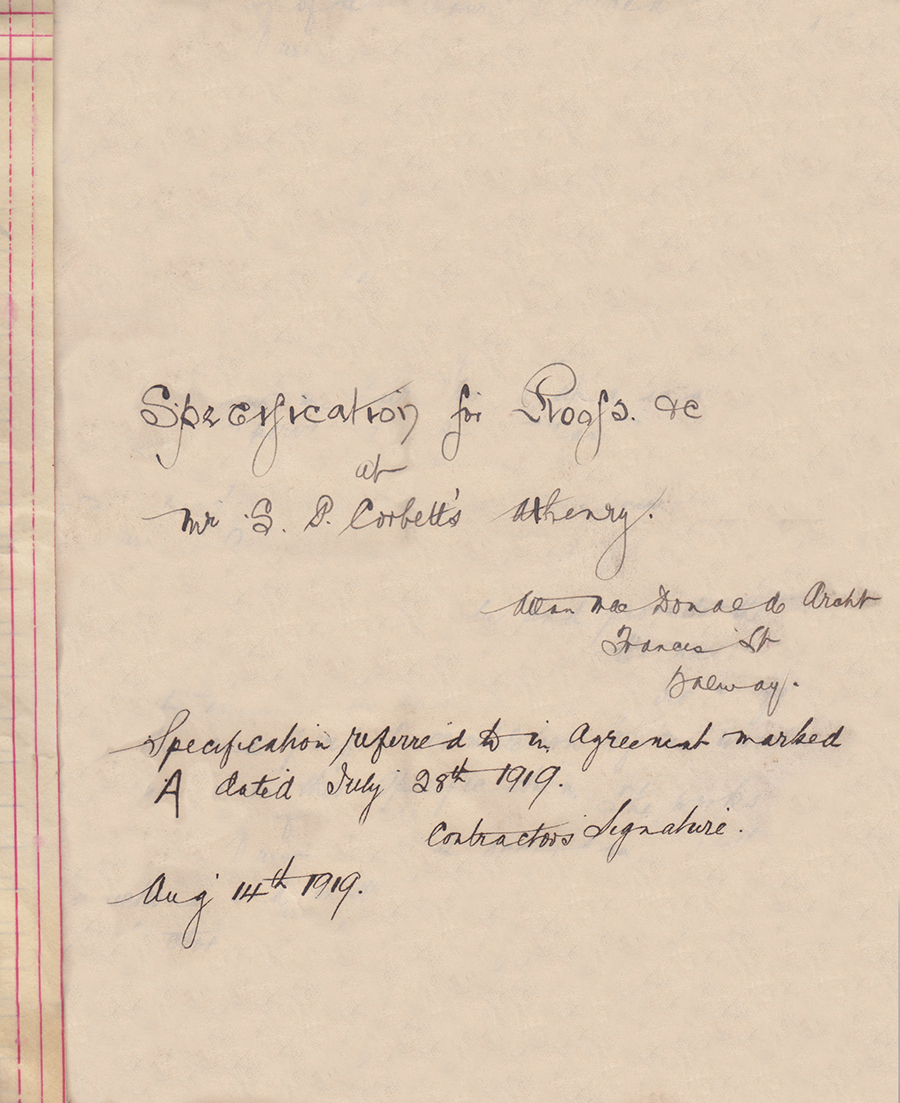 Specification for Roofs. &c
at
Mr S. P. Corbett's Athenry.
Allan Mac Donald Archt
Francis St
Galway.
Specification referred to in Agreement marked
A dated July 28th 1919.
Contractors Signature.
Aug 14th 1919.